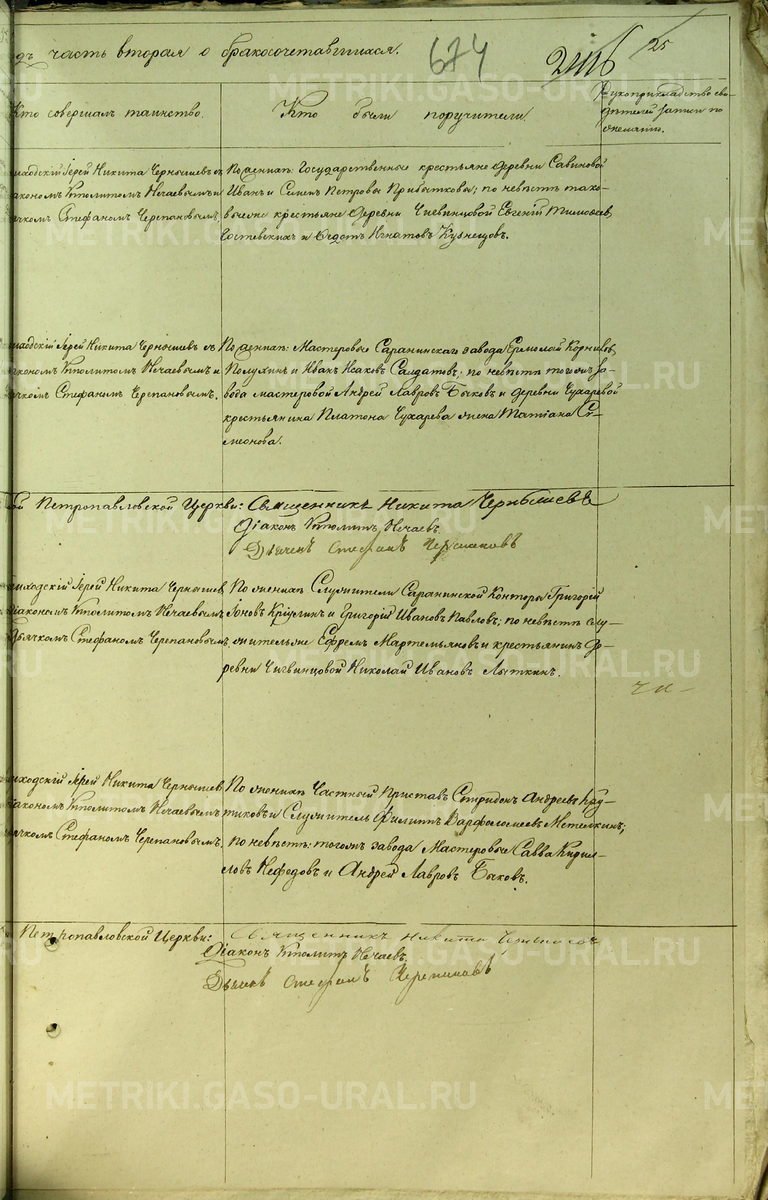 дъ часть вторая о бракосочетавшихся.
674
25
Кто совершалъ таинство.
Кто были поручители
Рукоприкладство сви-
дѣтелей записи по
желанію.
Іерей Никита Чернышевъ съ
Діакономъ Ипполитомъ Нечаевымъ и
Стефаномъ Черепановымъ.
По женихѣ: Государственные крестьяне деревни Савиновой
Иванъ и Семенъ Петровы Прибытковы; по невѣстѣ тако-
выеже крестьяне деревни Чигвинцовой Евгеній Тимофеевъ
и Ѳедотъ Игнатовъ Кузнецовъ.
Іерей Никита Чернышевъ съ
Діакономъ Ипполитомъ Нечаевымъ и
Стефаномъ Черепановымъ.
По женихѣ: Мастеровые Саранинскаго завода Ермолай Корниловъ
Полухинъ и Иванъ Исаковъ Салдатовъ; по невѣстѣ тогожъ за-
вода мастеровой Андрей Лавровъ Быковъ и деревни Чухаревой
крестьянина Платона Чухарева жена Татіана Си-
меонова.
ой Петропавловской Церкви: Священникъ Никита Чернышевъ
Діаконъ Ипполитъ Нечаевъ.
Дьячекъ Стефанъ Черепановъ
приходскій Іерей Никита Чернышевъ
Діакономъ Ипполитомъ Нечаевымъ
Дьячкомъ Стефаномъ Черепановымъ.
По женихѣ Служители Саранинской Конторы Григорій
Іоновъ и Григорій Ивановъ Павловъ; по невѣстѣ слу-
жительже Ефремъ Мартемьяновъ и крестьянинъ де-
ревни Чигвинцовой Николай Ивановъ Лыткинъ.
приходскій Іерей Никита Чернышевъ
Діакономъ Ипполитомъ Нечаевымъ
Стефаномъ Черепановымъ.
По женихѣ Частный Приставъ Спиридонъ Андреевъ Кру-
тиковъ и Служитель Филиппъ Варфоломеевъ Метелкинъ;
по невѣстѣ: тогожъ завода Мастеровые Савва Кирил-
ловъ Нефедовъ и Андрей Лавровъ Быковъ.
Петропавловской Церкви: Священникъ Никита Чернышевъ
Діаконъ Ипполитъ Нечаевъ.
Дьячекъ Стефанъ Черепановъ
METRIKI.GASO-URAL.RU